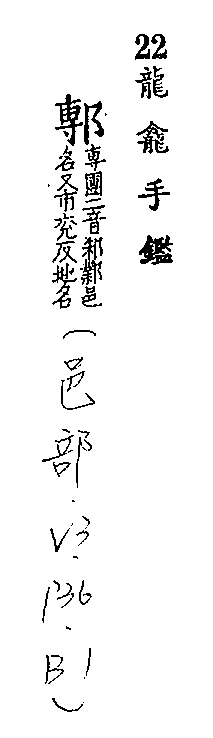 22龍龕手鑑
鄟
專團二音邾邑
名又市兖反地名
(邑部.V3.P36.B1)